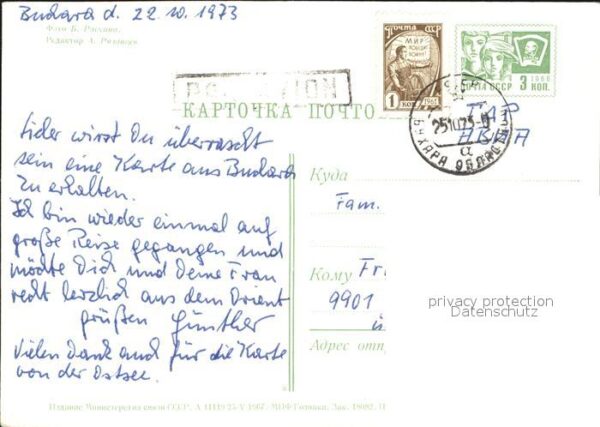 Buchara d. 22.10.1973
Фото Б.
Редактор А.
ПОЧТА СССР
МИР
1
КОП
ПОЧТА СССР 1966
3 КОП.
PAR AVION
КАРТОЧКА ПОЧТО
25 10 73
БУХАРА ОБЛАСТНОЙ
ГДР
Lieber wirst Du überrascht
sein eine Karte aus Buchara
zu erhalten.
Ich bin wieder einmal auf
große Reise gegangen und
möchte Dich und Deine Frau
recht herzlich aus dem Orient
grüßen Günther
Vielen Dank auch für die Karte
von der Ostsee.
Куда
Fam.
Кому Fr
9901
privacy protection
Datenschutz
Адрес отп
Издание Министерства связи СССР. 1967. МПФ Гознака. Зак.